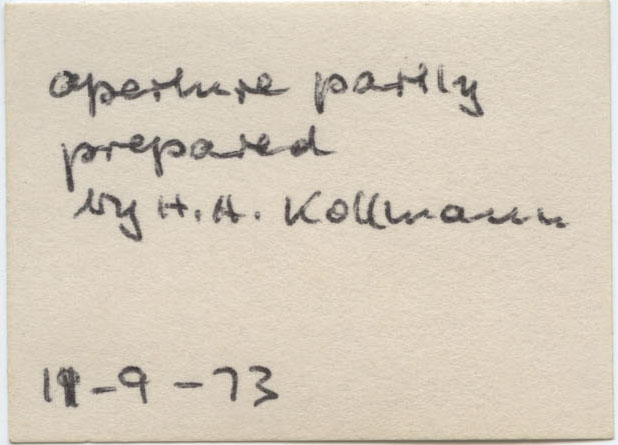 aperture partly
prepared
by H. A. Kollmann
11-9-73